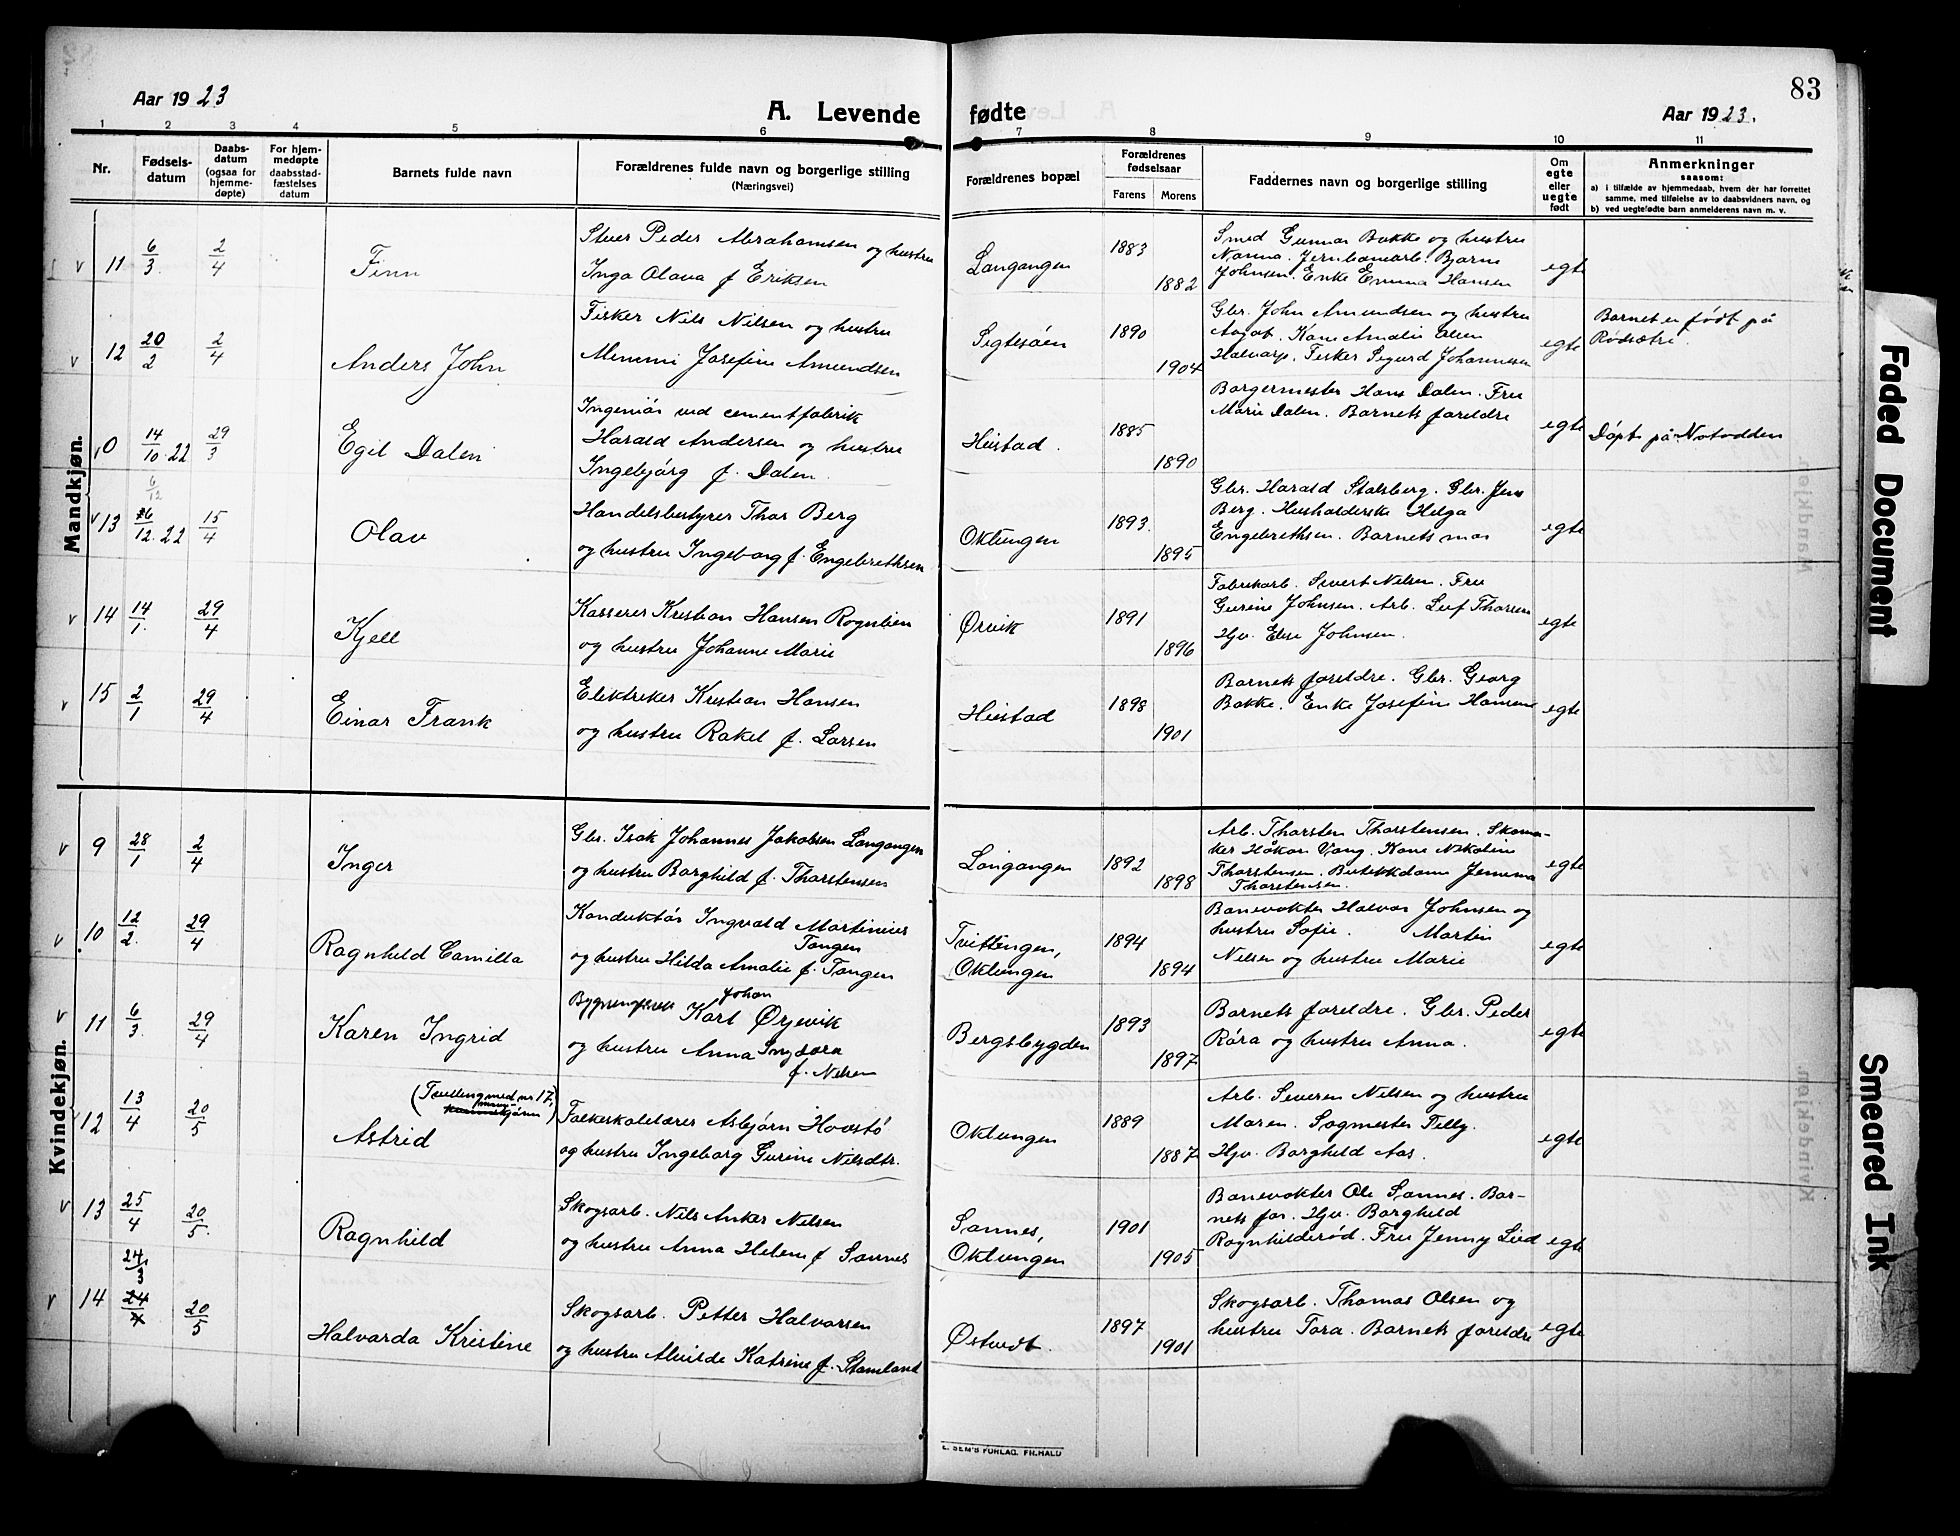 83
Aar 1923
A. Levende fødte
Aar 1923.
1 2 3 4 5 6 7 8 9 10 11
Nr.
Fødsels-
datum
Daabs-
datum
(ogsaa for
hjemme-
døpte)
For hjem-
medøpte
daabsstad-
fæstelses
datum
Barnets fulde navn
Forældrenes fulde navn og borgerlige stilling
(Næringsvei)
Forældrenes bopæl
Forældrenes
fødselsaar
Farens Morens
Faddernes navn og borgerlige stilling
Om
egte
eller
uegte
født
Anmerkninger
saasom:
a) i tilfælde av hjemmedaab, hvem der har forrettet
samme, med tilføielse av to daabsvidners navn, og
b) ved uegtefødte barn anmelderens navn m. v.
Mandkjøn.
v 11 6/3. 2/4 Finn
Stuer Peder Abrahamsen og hustru
Inga Olava f Eriksen
Langangen 1883 1882
Smed Gunnar Bakke og hustru
Nanna. Jernbanearb. Bjarne
Johnsen. Enke Emma Hansen
egte
v 12 20/2 2/4 Anders John
Fisker Nils Nilsen og hustru
Mimmi Josefine Amundsen
Sigtesøen 1890 1904
Gbr. John Amundsen og hustru
Aagot. Kone Amalie Ellen
Halvars. Fisker Sigurd Johannesen
egte
Barnet er født på
Rødsætri.
10 14/10.22 29/3 Egil Dalen
Ingeniør ved cementfabrik
Harald Andersen og hustru
Ingebjørg f. Dalen.
Heistad. 1885 1890
Borgermester Hans Dalen. Fru
Marie Dalen. Barnets foreldre
egte
Døpt på Notodden
6/12
v 13 16/12.22 15/4 Olav
Handelsbestyrer Thor Berg
og hustru Ingeborg f. Engebrethsen
Oklungen 1893. 1895
Gbr. Harald Stalsberg. Gbr. Jens
Berg. Husholderske Helga
Engebrethsen. Barnets mor
egte
v 14 14/1. 29/4 Kjell
Kasserer Kristian Hansen Rognlien
og hustru Johanne Marie
Ørvik 1891 1896
Fabrikarb. Sivert Nilsen. Fru
Gurine Johnsen. Arb. Leif Thorsen
Hjv. Else Johnsen.
egte
v 15 2/1 29/4 Einar Frank
Elektriker Kristian Hansen
og hustru Rakel f. Larsen
Heistad 1898 1901
Barnets foreldre. Gbr. Georg
Bakke. Enke Josefine Hansen
egte
Kvindekjøn.
v 9 28/1 2/4 Inger
Gbr. Isak Johannes Jakobsen Langangen
og hustru Borghild f. Thorstensen
Langangen 1892 1898
Arb. Thorsten Thorstensen. Skoma-
ker Håkon Vang. Kone Nikoline
Thorstensen. Butikkdame Jemima
Thorstensen.
egte
v 10 12/2. 29/4 Ragnhild Camilla
Konduktør Ingvald Martinius
Tangen
og hustru Hilda Amalie f. Tangen
Tvittingen,
Oklungen 1894 1894
Banevokter Halvor Johnsen og
hustru Sofie. Martin
Nilsen og hustru Marie
egte
v 11 6/3. 29/4 Karen Ingrid
Johan
Karl Ørjevik
og hustru Anna Ingvora
f. Nilsen
Bergsbygden 1893 1897
Barnets foreldre. Gbr. Peder
Røra og hustru Anna.
egte
v 12 13/4 20/5
(Tvilling med nr 17,
Astrid
Falkeskolelærer Asbjørn Hovstø
og hustru Ingeborg Gurine Nilsdtr.
Oklungen 1889 1887
Arb. Severin Nilsen og hustru
Maren. Sagmester Tilly.
Hjv. Borghild Aas.
egte
v 13 25/4 20/5. Ragnhild
Skogsarb. Nils Anker Nilsen
og hustru Anna Helene f Sannes
Sannes,
Oklungen 1901 1905
Banevokter Ole Sannes. Bar-
nets far. Hjv. Borghild
Ragnhilderød. Fru Jenny Lied
egte
24/3
v 14 24/4 20/5 Halvarda Kristine
Skogsarb. Petter Halvorsen
og hustru Alvilde Katrine f. Stamland
Østvedt. 1897 1901
Skogsarb. Thomas Olsen og
hustru Tora. Barnets foreldre
egte
E. SEM'S FORLAG, FR.HALD
Faded Document
Smeared Ink